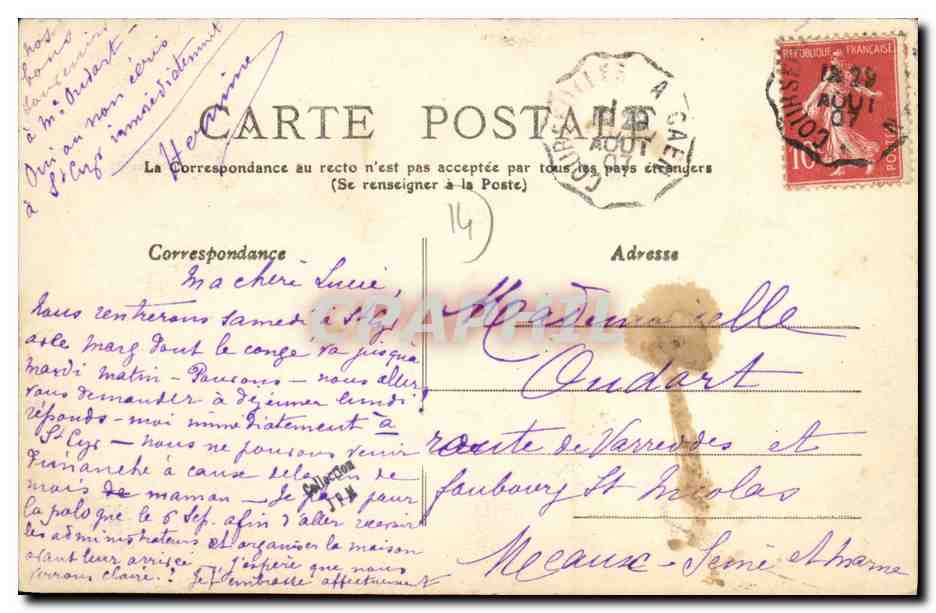 nos
bons
souvenirs
à Mme Oudart.
Oui ou non écris
à St Cyr immédiatement
Hermine
CARTE POSTALE
La Correspondance au recto n'est pas acceptée par tous les pays étrangers
(Se renseigner à la Poste)
COURSEULLES A CAEN
29
AOUT
07
REPUBLIQUE FRANÇAISE
10
COURSE
29
AOUT
07
14)
Correspondance
Ma chérie Lucie,
nous rentrerons samedi à St Cyr
avec Marg dont le congé va jusqua
mardi matin - Pouvons-nous aller
vous demander à déjeuner lundi?
réponds-moi immédiatement à
St Cyr - nous ne pouvons venir
Dimanche à cause de la fin de
mois de maman - Je pour
la pologne le 6 Sep. afin d'aller recevoir
les administrateurs et organiser la maison
avant leur arrivée j'espère que nous
verrons Claire! Je t'embrasse affectueusement
Collection
J P M
CARAPHIL
Adresse
Mademoiselle
Oudart
route de Varreddes et
faubourg St Nicolas
Meaux - Seine et Marne